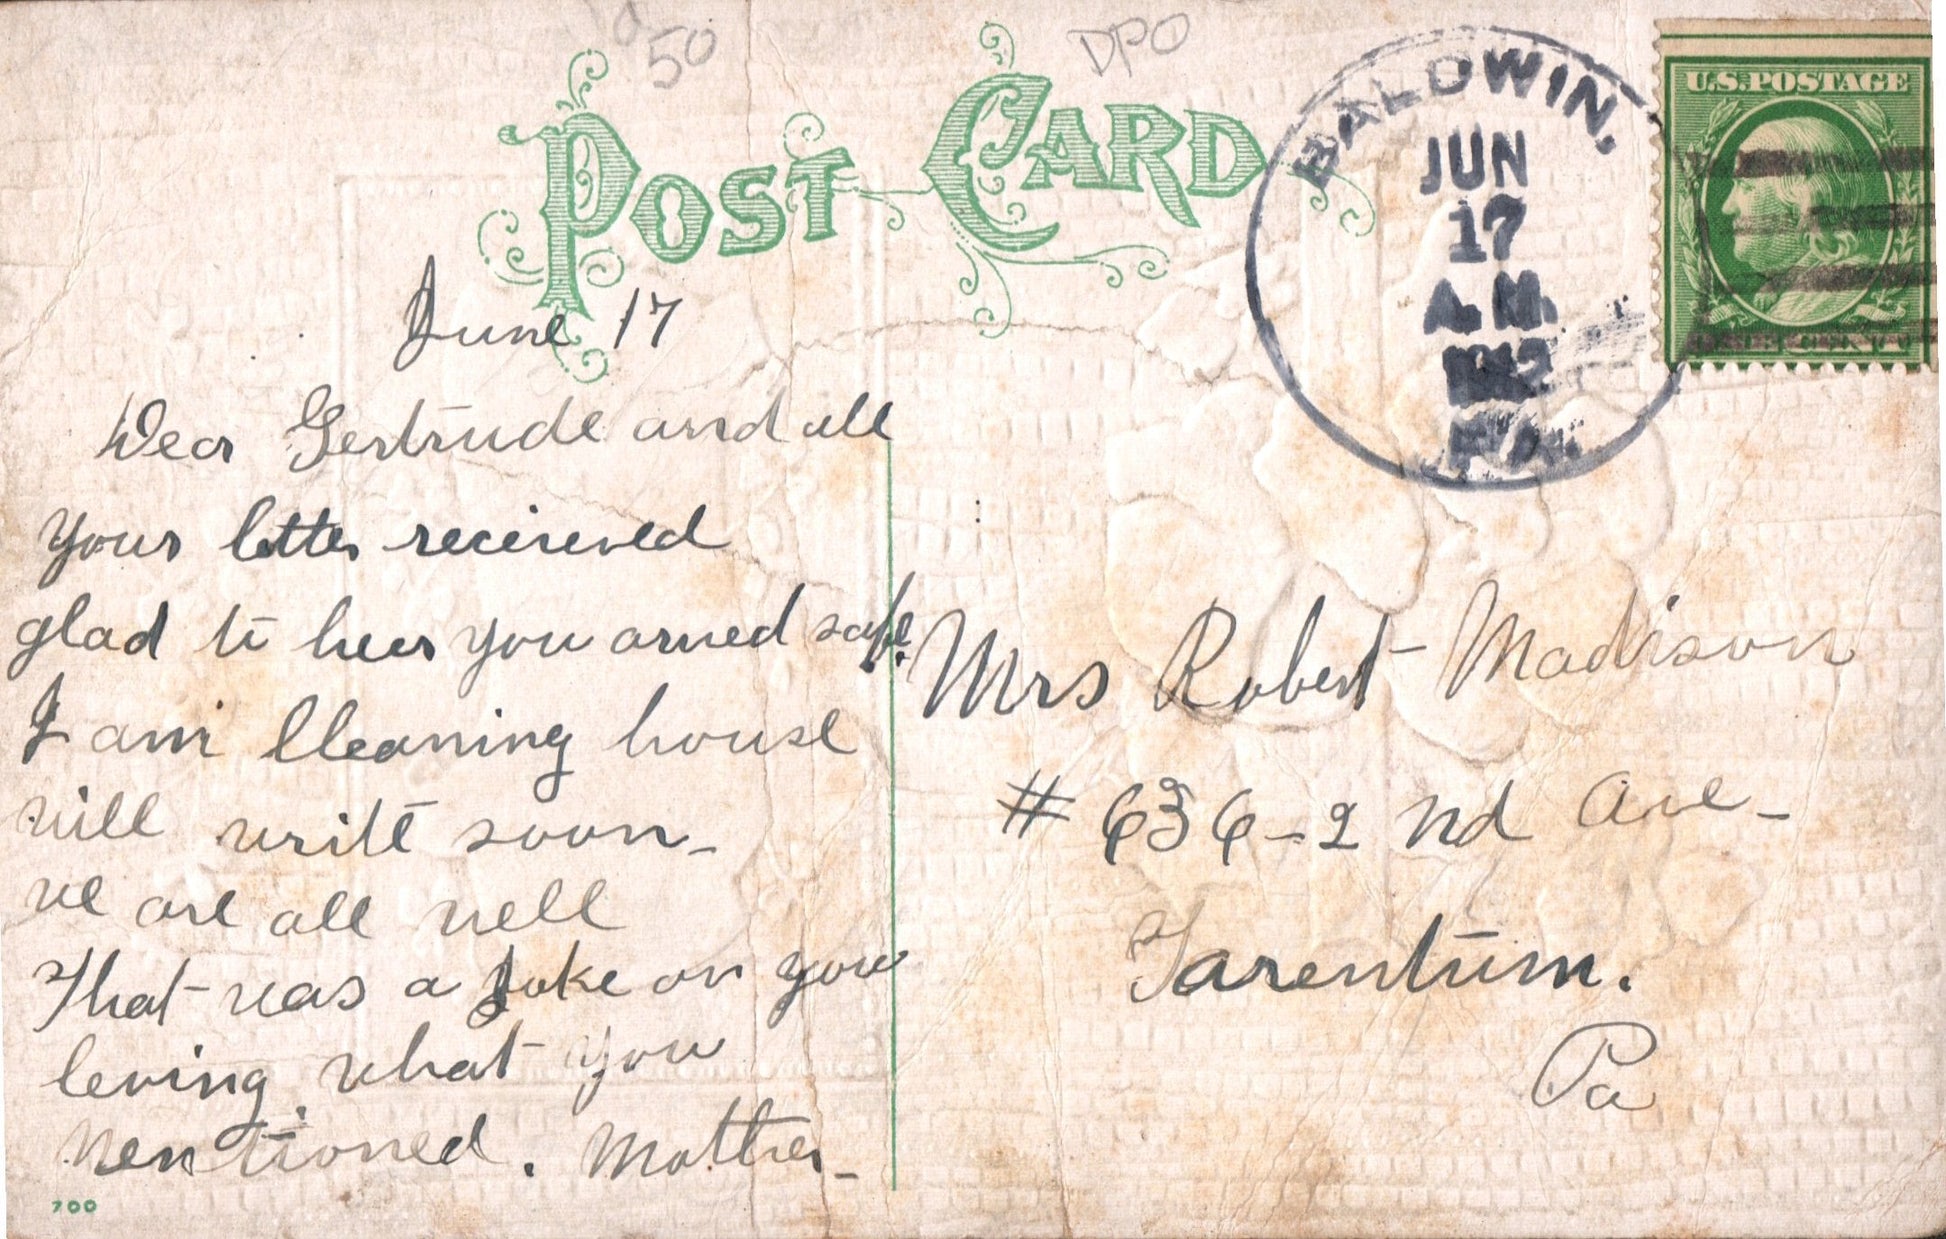 50
DPO
POST CARD
BALDWIN,
JUN
17
A.M.
1912
PA.
U.S. POSTAGE
June 17
Dear Gertrude and all
your letter recieved
glad to hear you arived safe.
I am Cleaning house
will write soon -
we are all well
That was a Joke on you
leving what you
mentioned. Mother -
Mrs Robert Madison
# 636 - 2 nd Ave -
Tarentum.
Pa
700